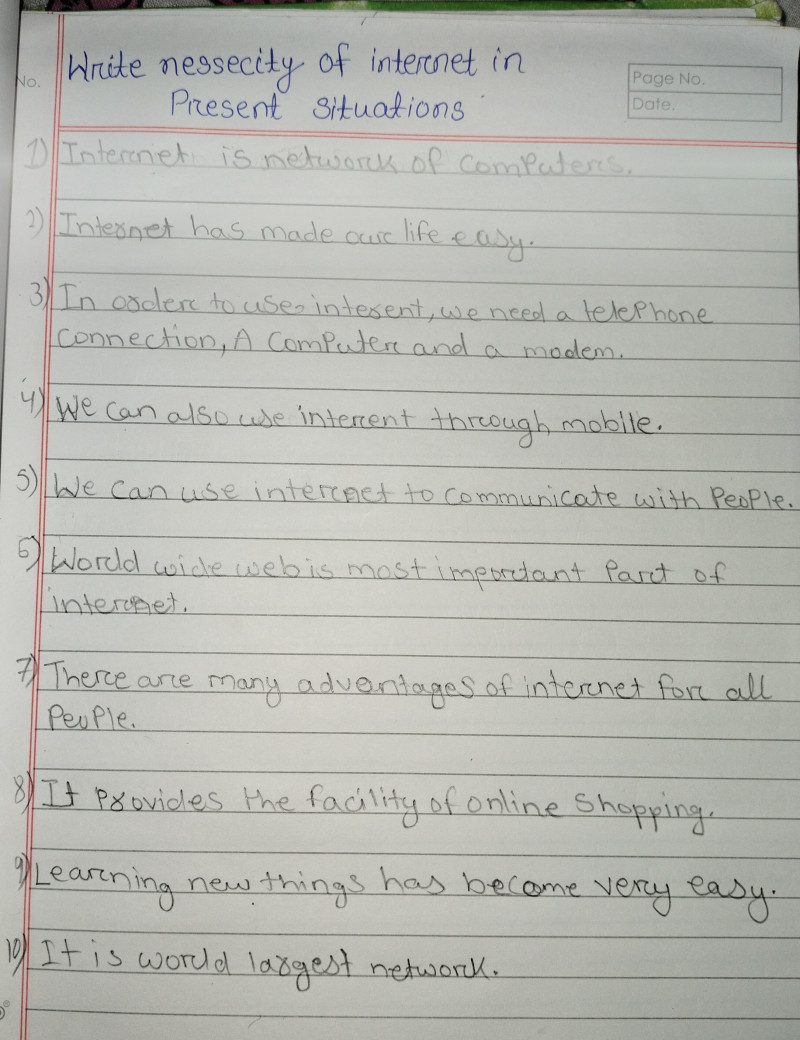 No.
Write nessecity of internet in
Present situations
Page No.
Date.
1) Internet is network of computers.
2) Internet has made our life easy.
3) In order to use intesent, we need a telephone
connection, A computer and a modem.
4) We can also use interent through mobile.
5) We can use internet to communicate with people.
6) World wide web is most important part of
internet.
7) There are many advantages of internet for all
people.
8) It provides the facility of online shopping.
9) Learning new things has become very easy.
10) It is world largest network.